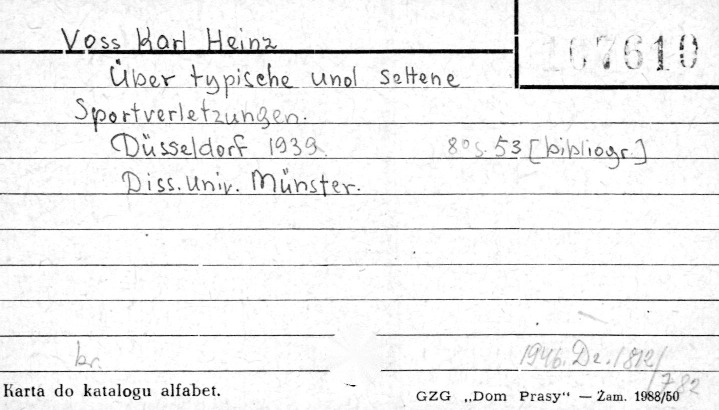 Voss Karl Heinz
107610
Über typische und seltene
Sportverletzungen.
Düsseldorf 1939. 8° s. 53 [bibliogr.]
Diss. Univ. Münster.
kr.
1946. Dz. 1812/
782
Karta do katalogu alfabet.
GZG „Dom Prasy“ — Zam. 1988/50